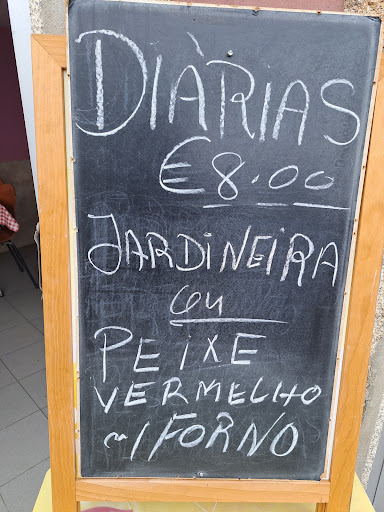 DIÀRIAS
€8.00
JARDINEIRA
ou
PEIXE
VERMELHO
n/FORNO